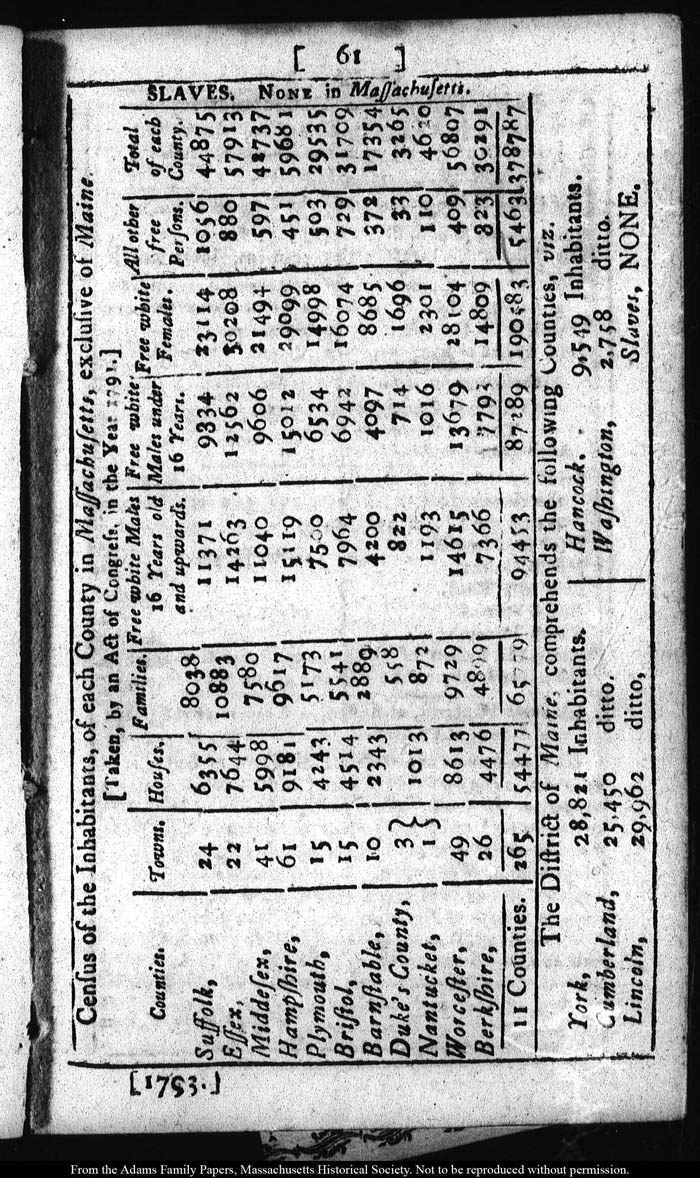 [ 61 ]
Cenſus of the Inhabitants, of each County in Maſſachuſetts, excluſive of Maine.
[Taken, by an Act of Congreſs, in the Year 1791.]
SLAVES. NONE in Maſſachuſetts.
Counties. Towns. Houſes. Families. Free white Males 16 Years old and upwards. Free white Males under 16 Years. Free white Females. All other free Perſons. Total of each County.
Suffolk, 24 6355 8038 11371 9334 23114 1056 44875
Eſſex, 22 7644 10883 14263 12562 30208 880 57913
Middleſex, 41 5998 7580 11040 9606 21494 597 42737
Hampſhire, 61 9181 9617 15119 15012 29099 451 59681
Plymouth, 15 4243 5173 7500 6534 14998 503 29535
Briſtol, 15 4514 5541 7964 6942 16074 729 31709
Barnſtable, 10 2343 2889 4200 4097 8685 372 17354
Duke's County, 3 } 558 822 714 1696 33 3265
Nantucket, 1 } 1013 872 1193 1016 2301 110 4620
Worceſter, 49 8613 9729 14615 13679 28104 409 56807
Berkſhire, 26 4476 4899 7366 7793 14809 823 30291
11 Counties. 265 54477 65779 94453 87289 190583 5463 378787
The Diſtrict of Maine, comprehends the following Counties, viz.
York, 28,821 Inhabitants. Hancock. 9,549 Inhabitants.
Cumberland, 25,450 ditto. Waſhington, 2,758 ditto.
Lincoln, 29,962 ditto, Slaves, NONE.
[1793.]
From the Adams Family Papers, Massachusetts Historical Society. Not to be reproduced without permission.